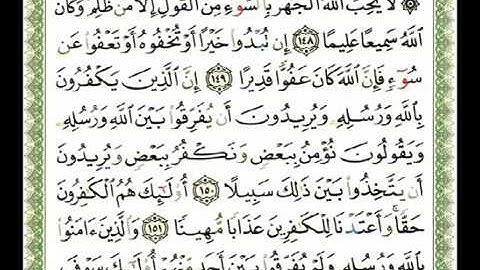 لَّا يُحِبُّ ٱللَّهُ ٱلْجَهْرَ بِٱلسُّوٓءِ مِنَ ٱلْقَوْلِ إِلَّا مَن ظُلِمَ وَكَانَ
ٱللَّهُ سَمِيعًا عَلِيمًا ١٤٨ إِن تُبْدُوا۟ خَيْرًا أَوْ تُخْفُوهُ أَوْ تَعْفُوا۟ عَن
سُوٓءٍ فَإِنَّ ٱللَّهَ كَانَ عَفُوًّا قَدِيرًا ١٤٩ إِنَّ ٱلَّذِينَ يَكْفُرُونَ
بِٱللَّهِ وَرُسُلِهِۦ وَيُرِيدُونَ أَن يُفَرِّقُوا۟ بَيْنَ ٱللَّهِ وَرُسُلِهِۦ
وَيَقُولُونَ نُؤْمِنُ بِبَعْضٍ وَنَكْفُرُ بِبَعْضٍ وَيُرِيدُونَ
أَن يَتَّخِذُوا۟ بَيْنَ ذَٰلِكَ سَبِيلًا ١٥٠ أُو۟لَـٰٓئِكَ هُمُ ٱلْكَـٰفِرُونَ
حَقًّا ۚ وَأَعْتَدْنَا لِلْكَـٰفِرِينَ عَذَابًا مُّهِينًا ١٥١ وَٱلَّذِينَ ءَامَنُوا۟
بِٱللَّهِ وَرُسُلِهِۦ وَلَمْ يُفَرِّقُوا۟ بَيْنَ أَحَدٍ مِّنْهُمْ أُو۟لَـٰٓئِكَ سَوْفَ